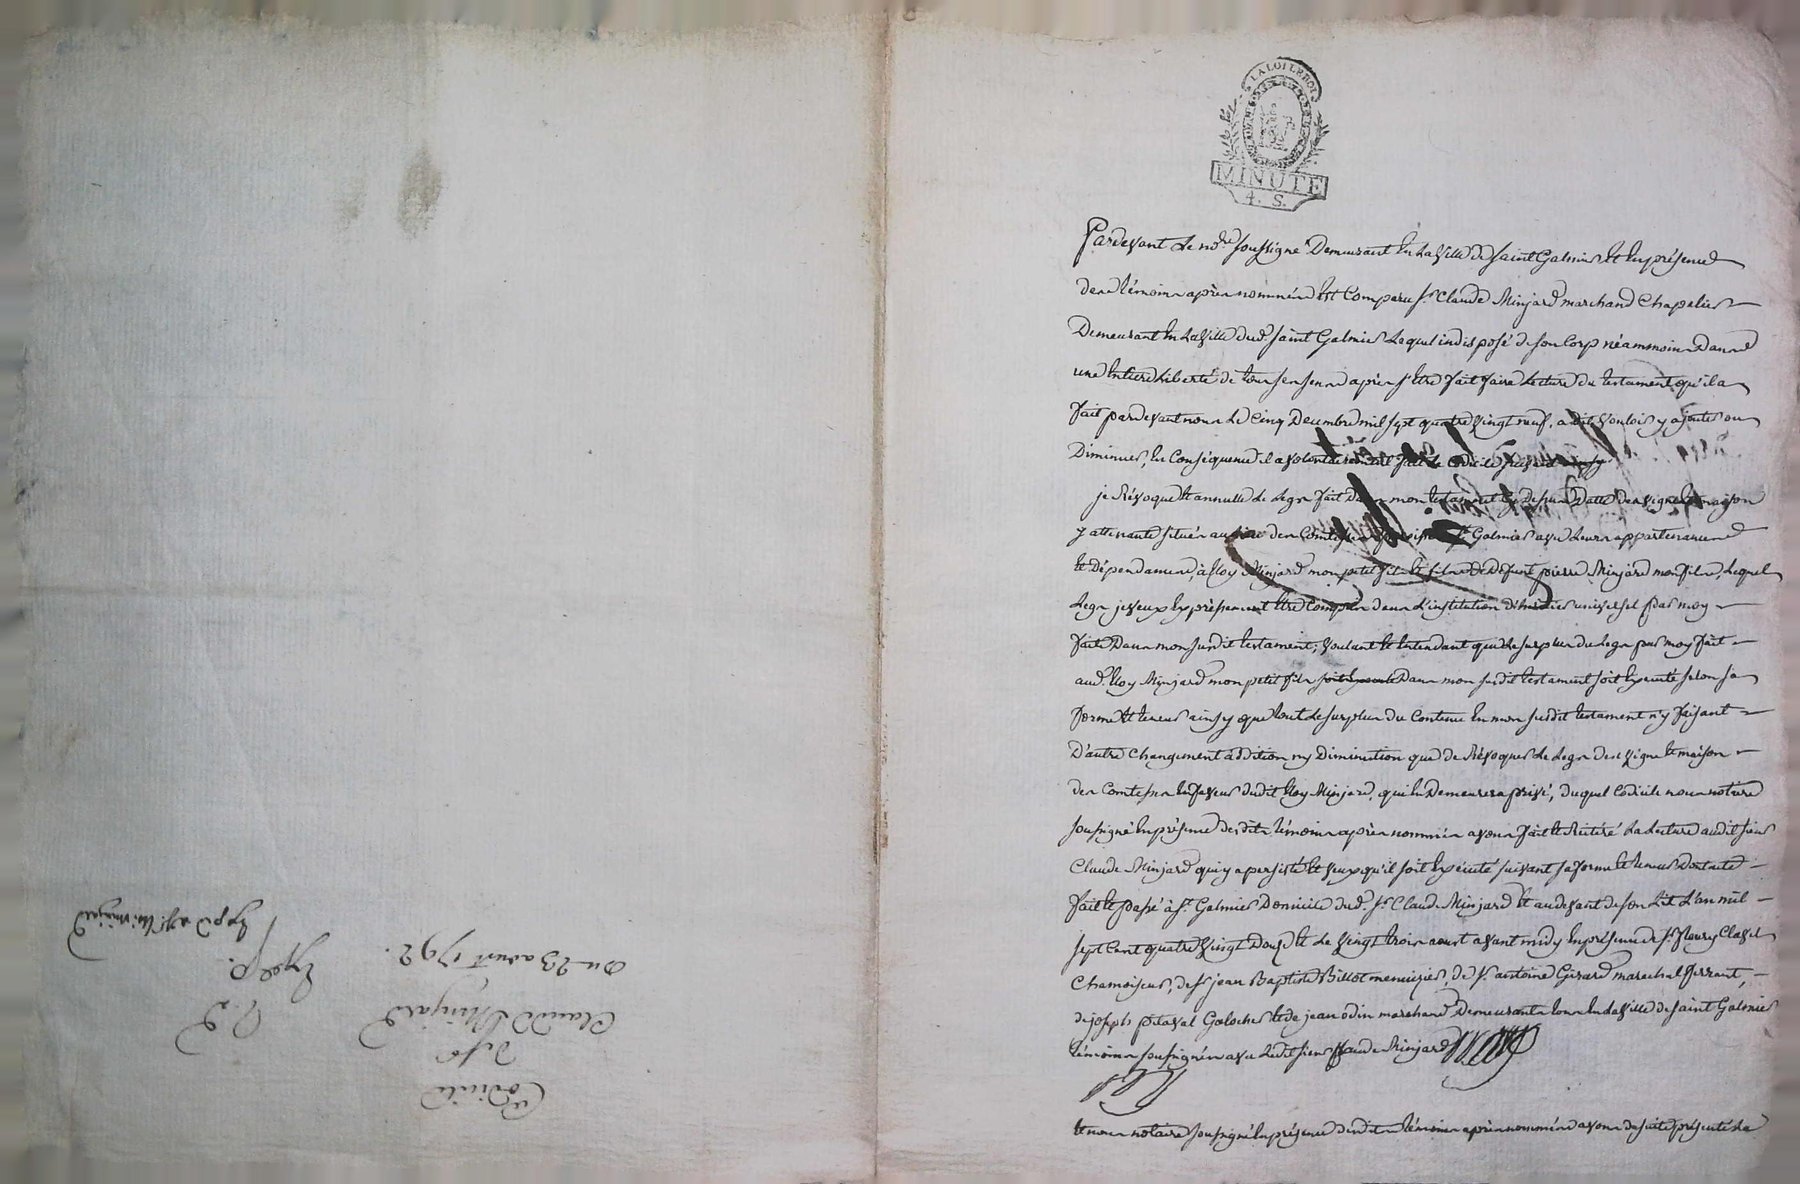 LA LOI LE ROI
MINUTE
4. S.
Pardevant Le nore soussigné Demeurant En La Ville de Saint Galmier et En présence
des témoins après nommés Est Comparu sr. Claude Minjard marchand Chapelier
Demeurant En La Ville dud. Saint Galmier Lequel indisposé de son Corp néammoins Dans
une Entiere Liberté de tous ses sens après s'être fait faire Lecture du testament qu'il a
fait pardevant nous Le Cinq Decembre mil sept quatre Vingt neuf, a dit Vouloir y ajouter ou
Diminuer, En Conséquence il a volontairement fait le Codicile
je Révoque Et annulle Le Legs fait Dans mon testament Cy Dessus Datté des vignes Et maison
y attenante située au lieu des Comtesses St. Galmier avec Leurs appartenances
Et Dépendances, à Eloy Minjard mon petit fils Et fils de Défunt pierre Minjard mon fils, Lequel
Legs je veux Expressement Etre Compris dans L'institution d'héritier universel par moy
faite Dans mon susdit testament; Voulant Et Entendant que Le surplus du Legs par moy fait
aud. Eloy Minjard mon petit fils soit Executé Dans mon susdit testament soit Executé selon sa
forme Et teneur ainsy que tout Le surplus du Contenu En mon susdit testament n'y faisant
D'autre Changement addition ny Diminution que de Révoquer Le Legs des Vigne Et maison
des Comtesses En faveur dudit Eloy Minjard, qui En Demeurera privé, duquel Codicile nous notaire
soussigné En présence desdits témoins après nommés avons fait Et Réitéré La Lecture audit sieur
Claude Minjard qui y a persisté Et Veux qu'il soit Exécuté suivant sa forme Et teneur Dont acte
fait Et passé à St. Galmier Domicile dud. sr. Claude Minjard Et au devant de son Lit L'an mil
sept Cent quatre Vingt Douze Et Le Vingt trois aoust avant midy En présence de sr. fleury Clavel
Chamoiseur, de sr jean Baptiste Billot menuizier, de sr. antoine Girard marechal ferrant,
de joseph pitaval Galocher Et de jean odin marchand Demeurants tous En La Ville de Saint Galmier
témoins soussignés avec Ledit sieur Claude Minjard
Et nous notaire soussigné En présence desdits témoins après nommés avons de suite présenté Le
Codicile
de sr
Claude Minjard
Du 23 aoust 1792.
Exp.
Exp.d a sr. Minjard